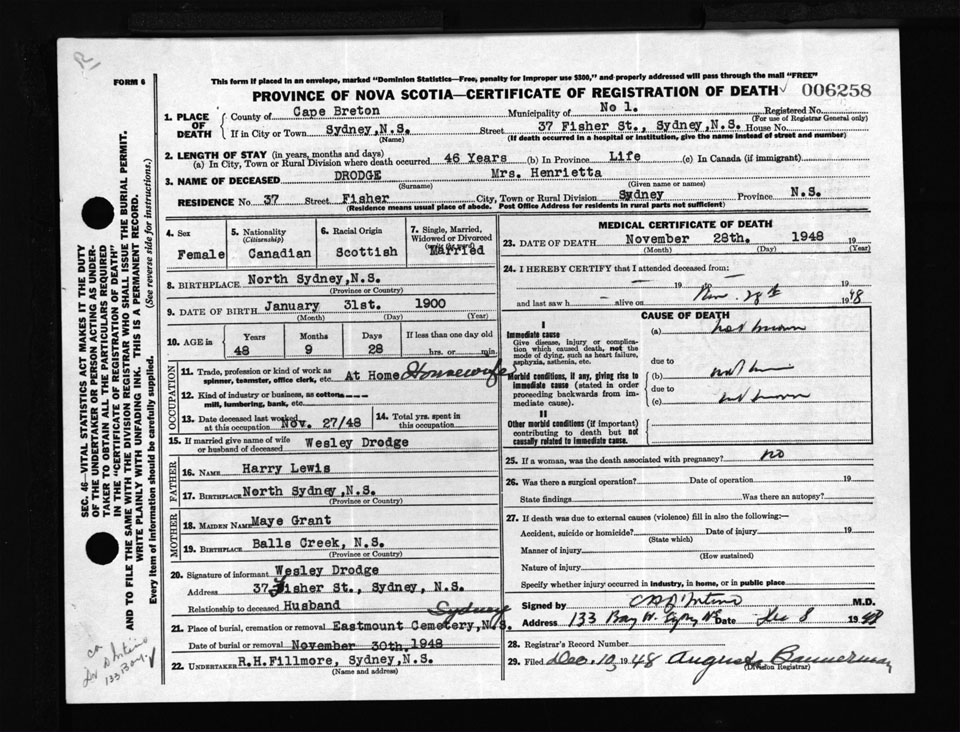 FORM 6
This form if placed in an envelope, marked "Dominion Statistics—Free, penalty for improper use $300," and properly addressed will pass through the mail "FREE"
PROVINCE OF NOVA SCOTIA—CERTIFICATE OF REGISTRATION OF DEATH 006258
1. PLACE OF DEATH
County of Cape Breton Municipality of No 1. Registered No.
(For use of Registrar General only)
If in City or Town Sydney, N.S. Street 37 Fisher St., Sydney, N.S. House No.
(Name) (If death occurred in a hospital or institution, give the name instead of street and number)
2. LENGTH OF STAY (in years, months and days)
(a) In City, Town or Rural Division where death occurred 46 Years (b) In Province Life (c) In Canada (if immigrant)
3. NAME OF DECEASED DRODGE Mrs. Henrietta
(Surname) (Given name or names)
RESIDENCE No. 37 Street Fisher City, Town or Rural Division Sydney Province N.S.
(Residence means usual place of abode. Post Office Address for residents in rural parts not sufficient)
4. Sex Female
5. Nationality (Citizenship) Canadian
6. Racial Origin Scottish
7. Single, Married, Widowed or Divorced (write the word) Married
8. BIRTHPLACE North Sydney, N.S.
(Province or Country)
9. DATE OF BIRTH January 31st. 1900
(Month) (Day) (Year)
10. AGE in Years Months Days If less than one day old
48 9 28 hrs. or min.
OCCUPATION
11. Trade, profession or kind of work as spinner, teamster, office clerk, etc. At Home Housewife
12. Kind of industry or business, as cotton mill, lumbering, bank, etc.
13. Date deceased last worked at this occupation Nov. 27/48 14. Total yrs. spent in this occupation
15. If married give name of wife or husband of deceased Wesley Drodge
FATHER
16. NAME Harry Lewis
17. BIRTHPLACE North Sydney, N.S.
(Province or Country)
MOTHER
18. MAIDEN NAME Maye Grant
19. BIRTHPLACE Balls Creek, N.S.
(Province or Country)
20. Signature of informant Wesley Drodge
Address 37 Fisher St., Sydney, N.S.
Relationship to deceased Husband
21. Place of burial, cremation or removal Eastmount Cemetery, N.S. Sydney
Date of burial or removal November 30th, 1948
22. UNDERTAKER R.H.Fillmore, Sydney, N.S.
(Name and address)
MEDICAL CERTIFICATE OF DEATH
23. DATE OF DEATH November 28th. 1948 19
(Month) (Day) (Year)
24. I HEREBY CERTIFY that I attended deceased from:
19 to Nov. 28th 1948
and last saw h alive on 19
CAUSE OF DEATH
I
Immediate cause
Give disease, injury or complication which caused death, not the mode of dying, such as heart failure, asphyxia, asthenia, etc.
(a) not known
due to
Morbid conditions, if any, giving rise to immediate cause (stated in order proceeding backwards from immediate cause).
(b) not known
due to
(c) not known
II
Other morbid conditions (if important) contributing to death but not causally related to immediate cause.
25. If a woman, was the death associated with pregnancy? no
26. Was there a surgical operation? Date of operation 19
State findings Was there an autopsy?
27. If death was due to external causes (violence) fill in also the following:—
Accident, suicide or homicide? Date of injury 19
(State which)
Manner of injury
(How sustained)
Nature of injury
Specify whether injury occurred in industry, in home, or in public place
Signed by M.D.
Address 133 Bay Date Dec 8 1948
28. Registrar's Record Number
29. Filed Dec. 10, 1948 Augusta Bannerman
(Division Registrar)
SEC. 46—VITAL STATISTICS ACT MAKES IT THE DUTY
OF THE UNDERTAKER OR PERSON ACTING AS UNDER-
TAKER TO OBTAIN ALL THE PARTICULARS REQUIRED
IN THE "CERTIFICATE OF REGISTRATION OF DEATH"
AND TO FILE THE SAME WITH THE DIVISION REGISTRAR WHO SHALL ISSUE THE BURIAL PERMIT.
WRITE PLAINLY WITH UNFADING INK. THIS IS A PERMANENT RECORD.
Every item of information should be carefully supplied. (See reverse side for instructions.)
133 Bay